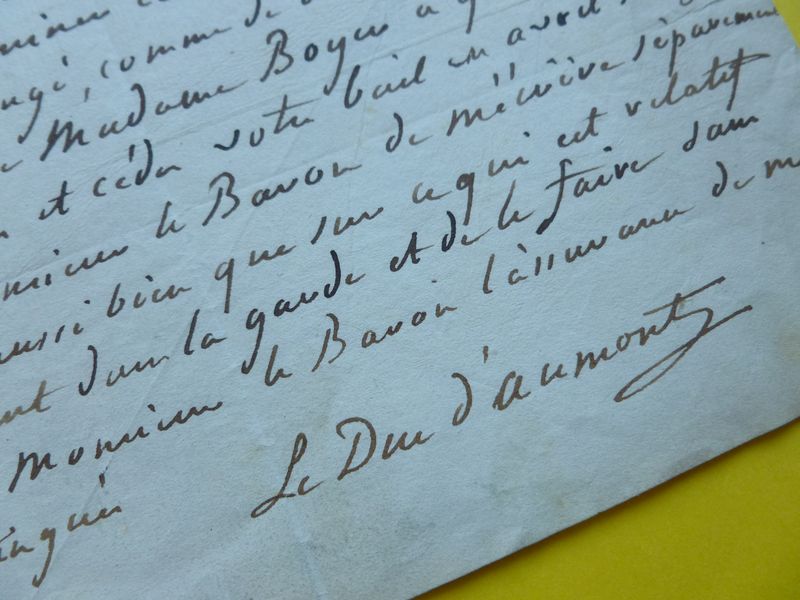 ngé, comme de
Madame Boyer a q
et céder votre bail en avril
le Baron de m'écrire séparement
aussi bien que sur ce qui est relatif
dans la garde et de le faire dans
Monsieur le Baron l'assurance de m
inguée
Le Duc d'aumont